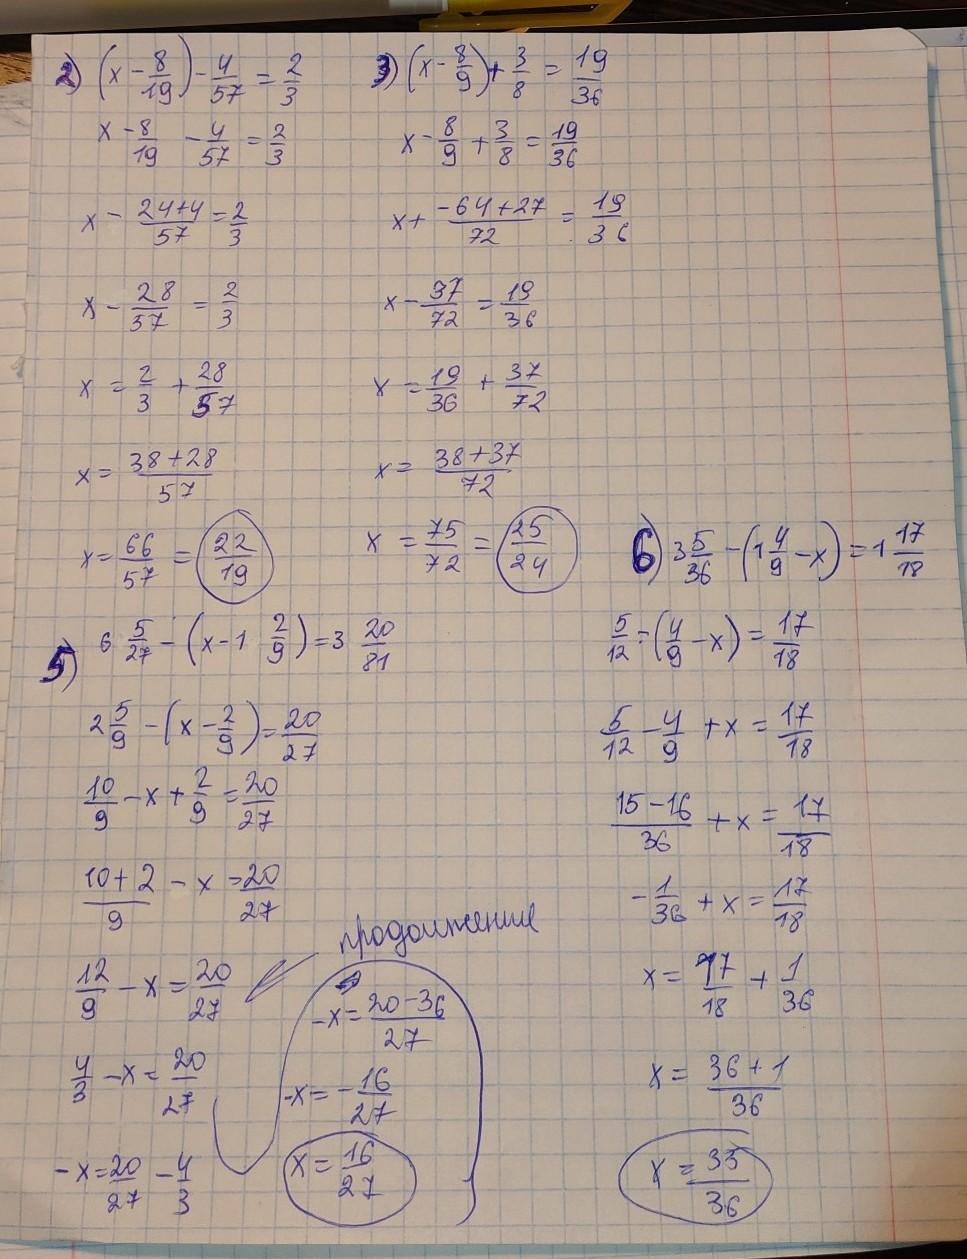 2) (x - 8/19) - 4/57 = 2/3
x - 8/19 - 4/57 = 2/3
x - (24+4)/57 = 2/3
x - 28/57 = 2/3
x = 2/3 + 28/57
x = (38+28)/57
x = 66/57 = 22/19
3) (x - 8/9) + 3/8 = 19/36
x - 8/9 + 3/8 = 19/36
x + (-64+27)/72 = 19/36
x - 37/72 = 19/36
x = 19/36 + 37/72
x = (38+37)/72
x = 75/72 = 25/24
5) 6 5/27 - (x - 1 2/9) = 3 20/81
2 5/9 - (x - 2/9) = 20/27
10/9 - x + 2/9 = 20/27
(10+2)/9 - x = 20/27
12/9 - x = 20/27
4/3 - x = 20/27
-x = 20/27 - 4/3
продолжение
-x = (20-36)/27
-x = -16/27
x = 16/27
6) 3 5/36 - (1 4/9 - x) = 1 17/18
5/12 - (4/9 - x) = 17/18
5/12 - 4/9 + x = 17/18
(15-16)/36 + x = 17/18
-1/36 + x = 17/18
x = 17/18 + 1/36
x = (36+1)/36
x = 35/36